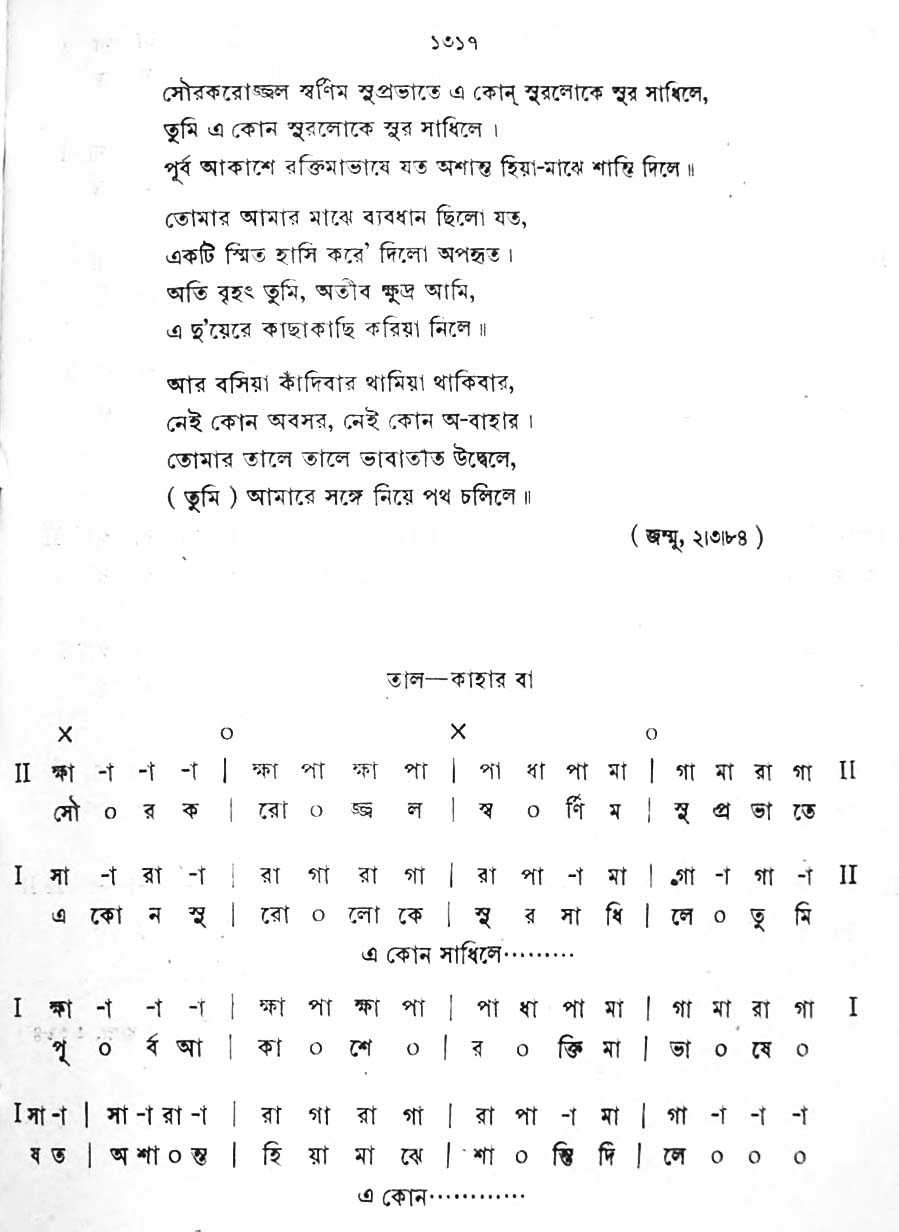 ১৩১৭
সৌরকরোজ্জ্বল স্বর্ণিম সুপ্রভাতে এ কোন্ সুরলোকে সুর সাধিলে,
তুমি এ কোন সুরলোকে সুর সাধিলে ।
পূর্ব আকাশে রক্তিমাভাষে যত অশান্ত হিয়া-মাঝে শান্তি দিলে ॥
তোমার আমার মাঝে ব্যবধান ছিলো যত,
একটি স্মিত হাসি করে' দিলো অপহৃত ।
অতি বৃহৎ তুমি, অতীব ক্ষুদ্র আমি,
এ দু'য়েরে কাছাকাছি করিয়া নিলে ॥
আর বসিয়া কাঁদিবার থামিয়া থাকিবার,
নেই কোন অবসর, নেই কোন অ-বাহার ।
তোমার তালে তালে ভাবাতীত উদ্বেলে,
( তুমি ) আমারে সঙ্গে নিয়ে পথ চলিলে ॥
( জম্মু, ২।৩।৮৪ )
তাল—কাহার বা
× ০ × ০
II ক্ষা -া -া -া | ক্ষা পা ক্ষা পা | পা ধা পা মা | গা মা রা গা II
সৌ ০ র ক | রো ০ জ্জ্ব ল | স্ব ০ র্ণি ম | সু প্র ভা তে
I সা -া রা -া | রা গা রা গা | রা পা -া মা | গা -া গা -া II
এ কো ন সু | রো ০ লো কে | সু র সা ধি | লে ০ তু মি
এ কোন সাধিলে·········
I ক্ষা -া -া -া | ক্ষা পা ক্ষা পা | পা ধা পা মা | গা মা রা গা I
পূ ০ র্ব আ | কা ০ শে ০ | র ০ ক্তি মা | ভা ০ ষে ০
I সা -া | সা -া রা -া | রা গা রা গা | রা পা -া মা | গা -া -া -া
য ত | অ শা ০ ন্ত | হি য়া মা ঝে | শা ০ ন্তি দি | লে ০ ০ ০
এ কোন············